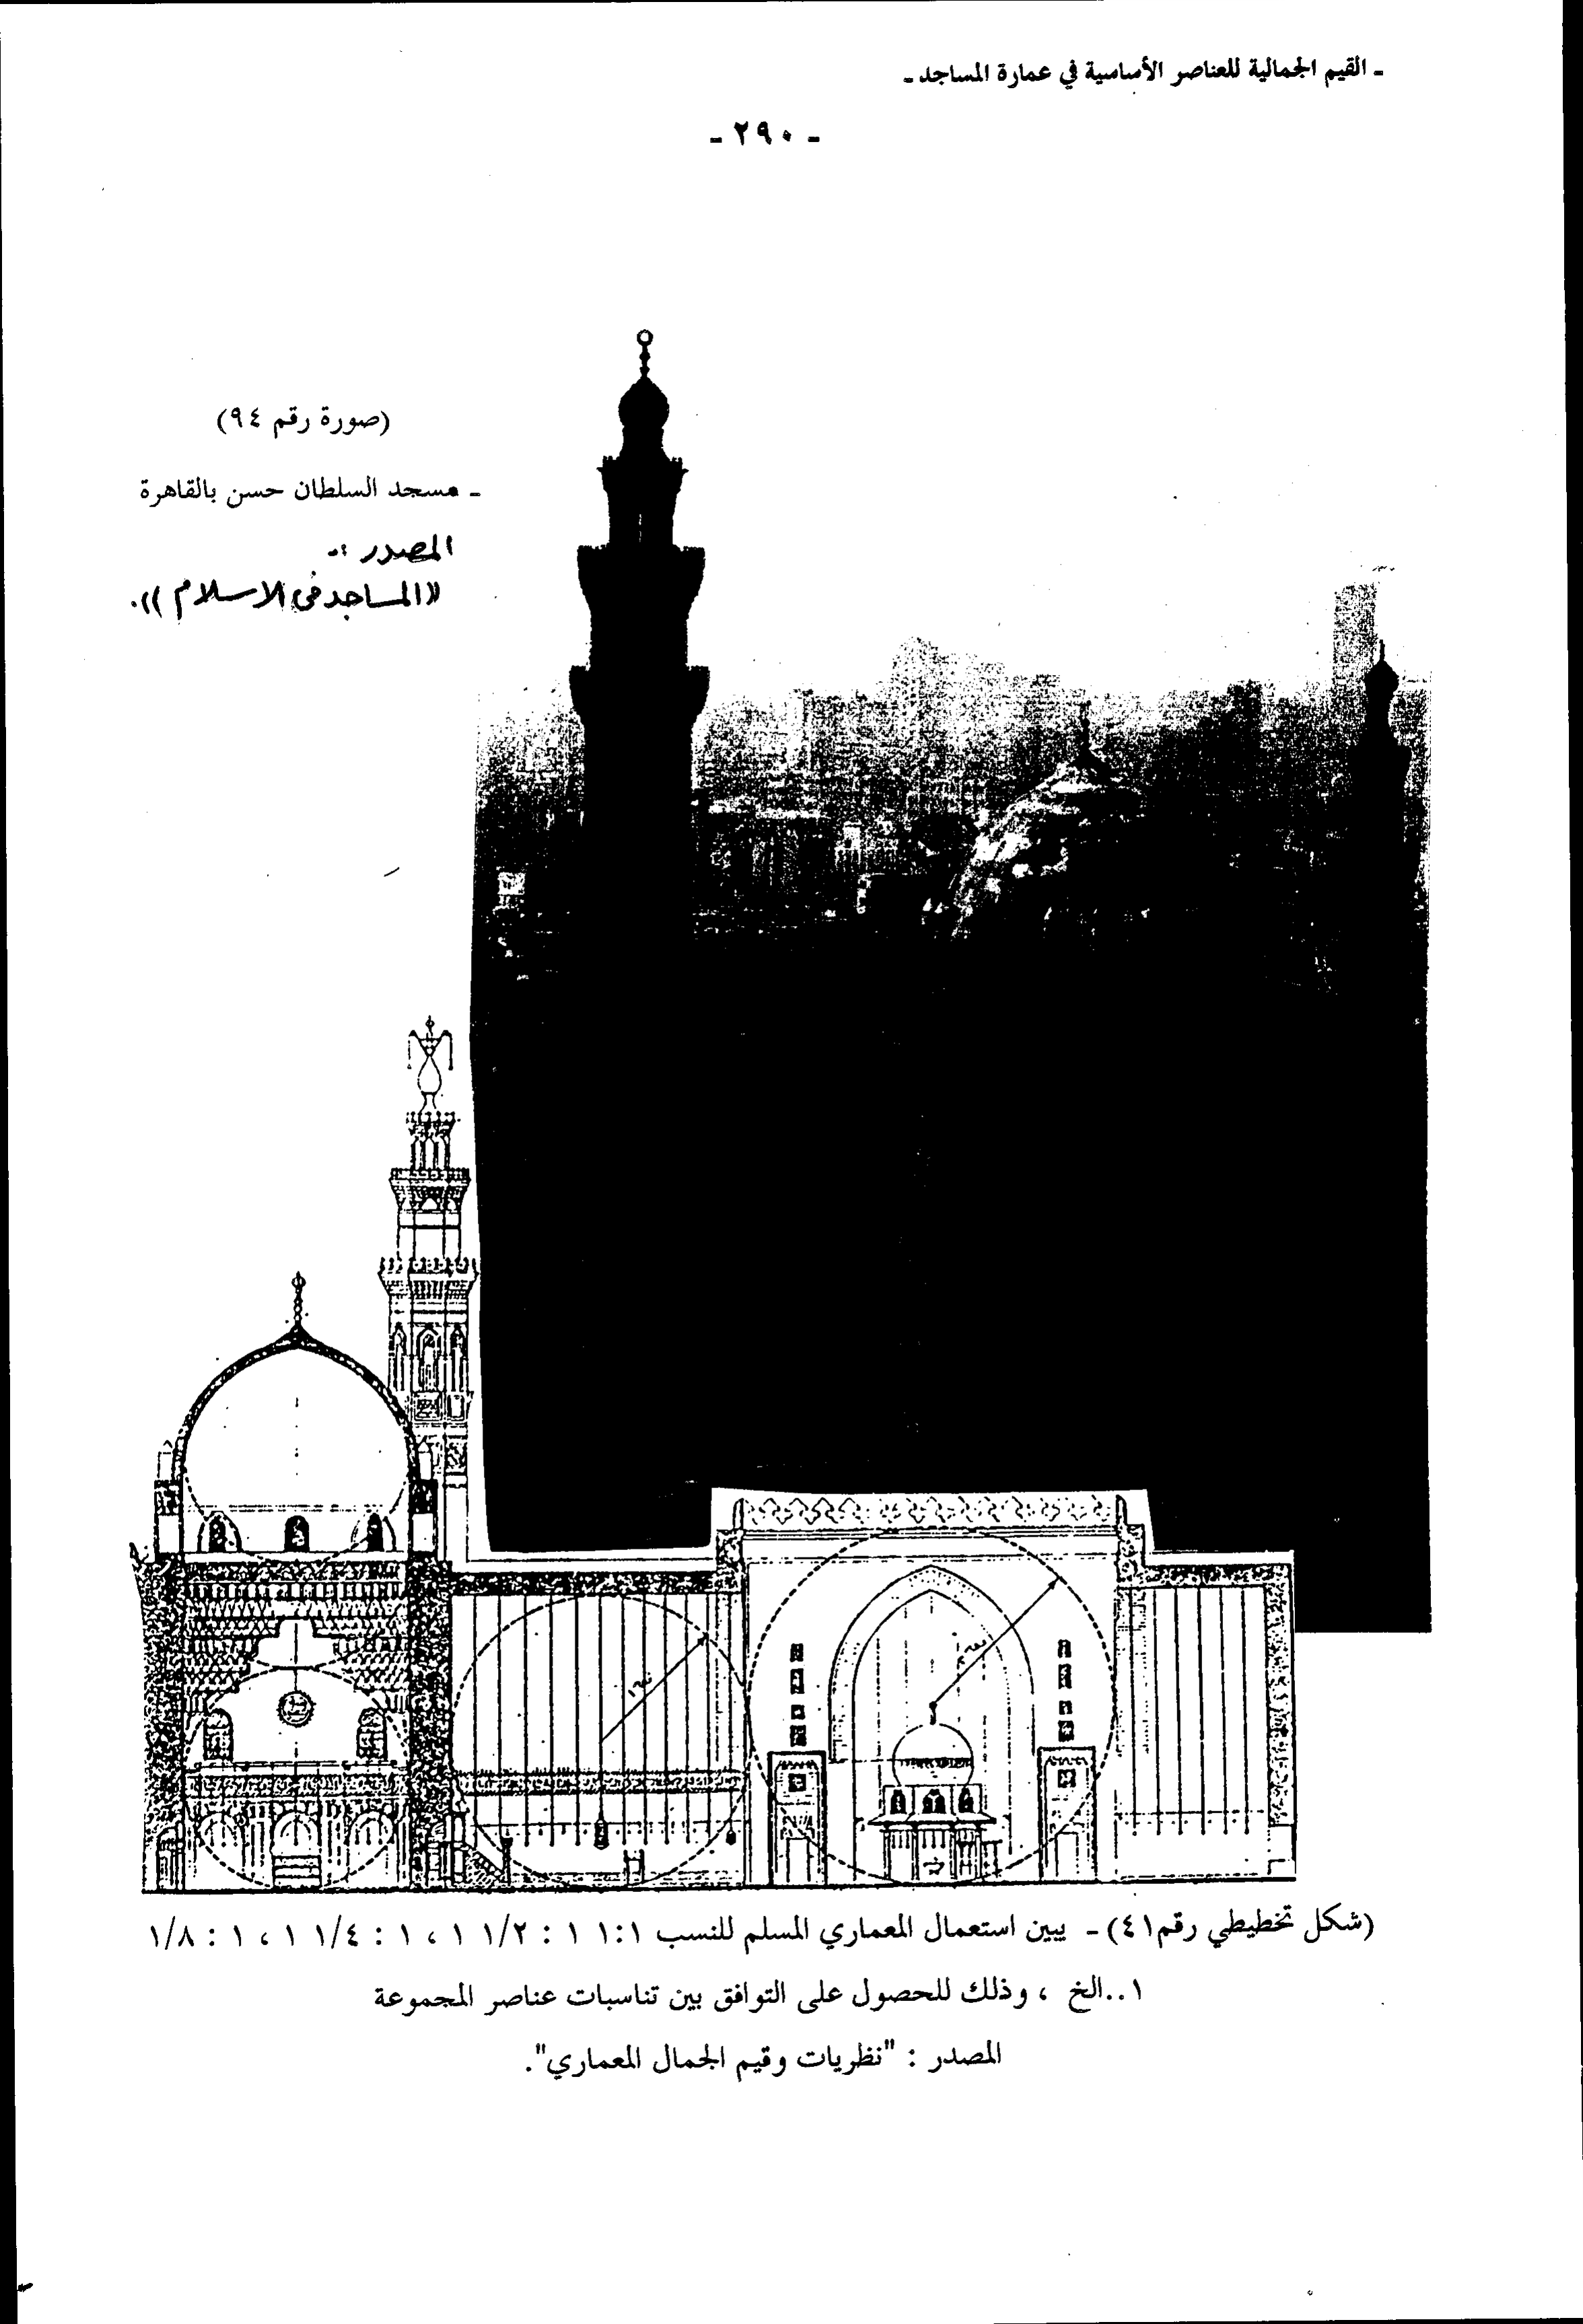 ـ القيم الجمالية للعناصر الأساسية في عمارة المساجد ـ
ـ ٢٩٠ ـ
(صورة رقم ٩٤)
ـ مسجد السلطان حسن بالقاهرة
المصدر :ـ
((المساجد في الاسلام)).
(شكل تخطيطي رقم٤١) ـ يبين استعمال المعماري المسلم للنسب ١:١ ١ : ١/٢ ١ ، ١ : ١/٤ ١ ، ١ : ١/٨
١..الخ ، وذلك للحصول على التوافق بين تناسبات عناصر المجموعة
المصدر : "نظريات وقيم الجمال المعماري".